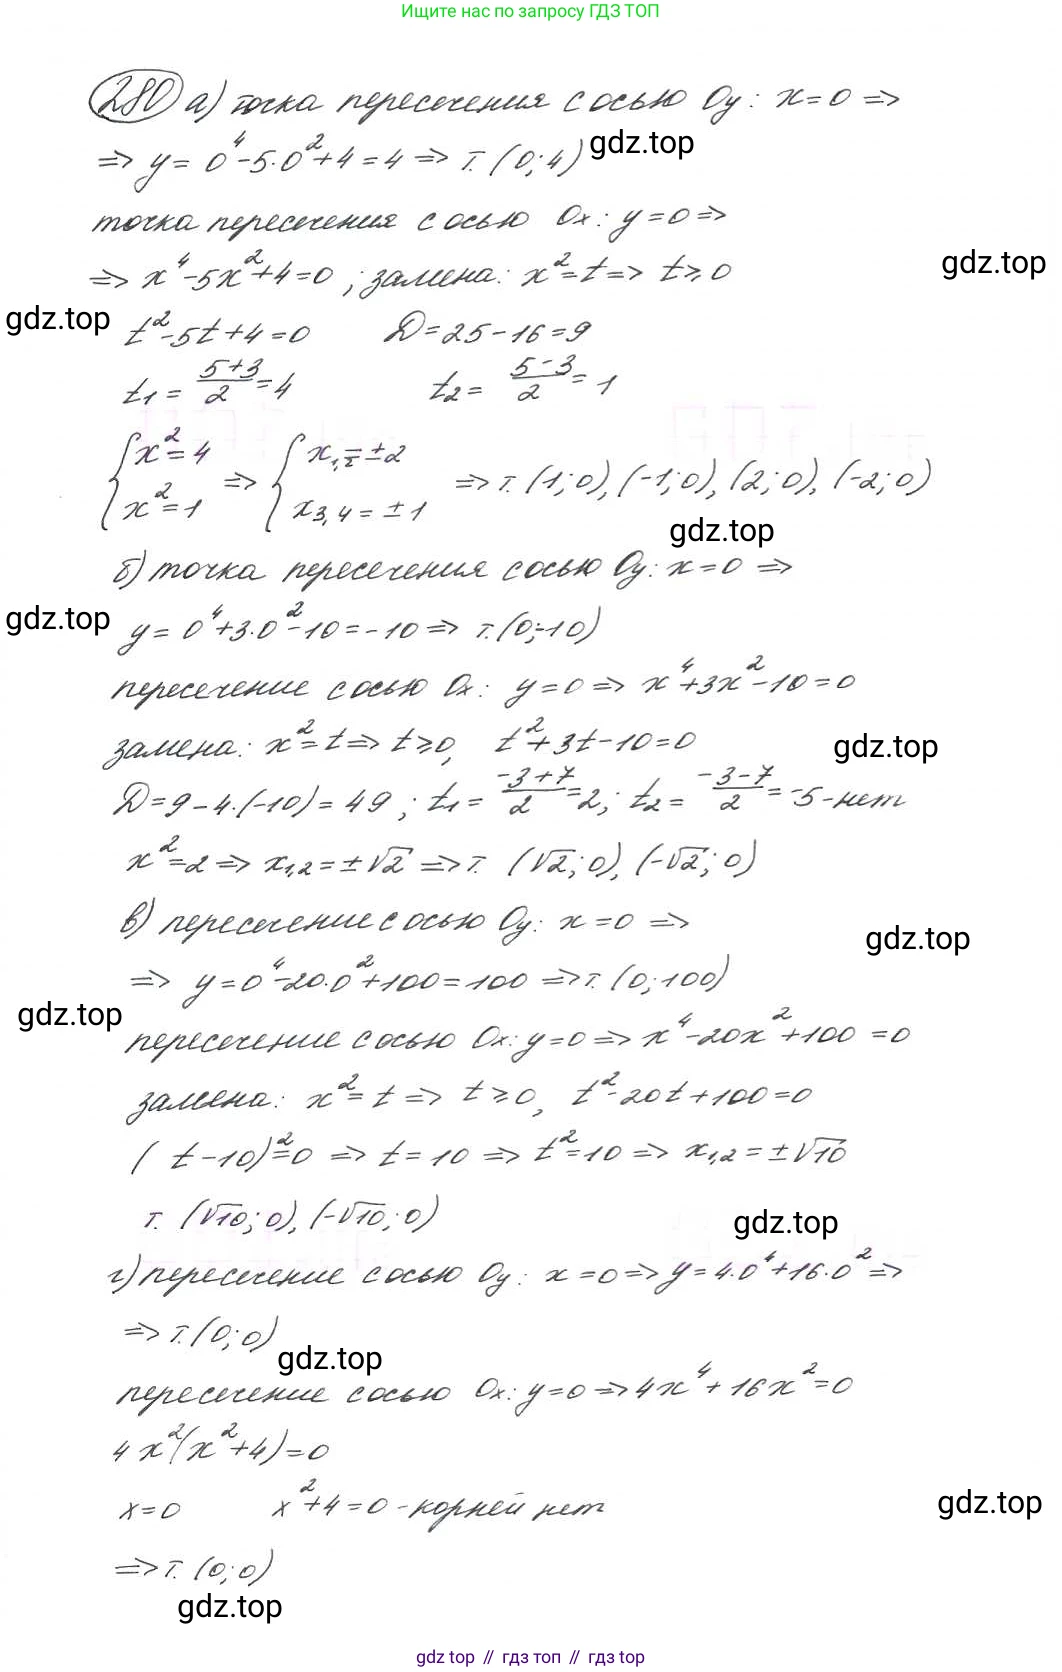 Ищите нас по запросу ГДЗ ТОП
280 а) точка пересечения с осью Oy: x=0 =>
=> y= 0⁴-5·0²+4=4 => т. (0;4) gdz.top
точка пересечения с осью Ox: y=0 =>
=> x⁴-5x²+4=0 ; замена: x²=t => t≥0 gdz.top
gdz.top t²-5t+4=0 D=25-16=9
t₁ = (5+3)/2 = 4 t₂ = (5-3)/2 = 1
{ x²=4 => { x₁,₂=±2 => т. (1;0), (-1;0), (2;0), (-2;0)
{ x²=1 { x₃,₄=±1
gdz.top
б) точка пересечения с осью Oy: x=0 =>
gdz.top y= 0⁴+3·0²-10=-10 => т. (0;-10)
пересечение с осью Ox: y=0 => x⁴+3x²-10=0
замена: x²=t => t≥0, t²+3t-10=0 gdz.top
D=9-4·(-10)=49 ; t₁= (-3+7)/2 =2; t₂= (-3-7)/2 =-5-нет
x²=2 => x₁,₂=±√2 => т. (√2;0), (-√2;0)
в) пересечение с осью Oy: x=0 => gdz.top
=> y=0⁴-20·0²+100=100 => т. (0;100)
gdz.top
пересечение с осью Ox: y=0 => x⁴-20x²+100=0
замена: x²=t => t≥0, t²-20t+100=0
(t-10)²=0 => t=10 => t²=10 => x₁,₂=±√10
т. (√10;0), (-√10;0) gdz.top
г) пересечение с осью Oy: x=0 => y=4·0⁴+16·0² =>
=> т. (0;0)
gdz.top
пересечение с осью Ox: y=0 => 4x⁴+16x²=0
4x²(x²+4)=0
x=0 x²+4=0 -корней нет gdz.top
=> т. (0;0)
gdz.top
gdz top // гдз топ // gdz top